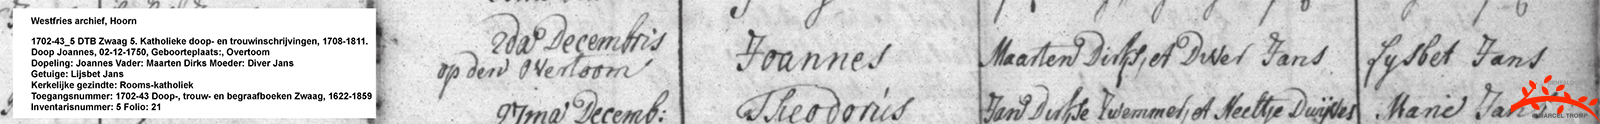 Westfries archief, Hoorn
1702-43_5 DTB Zwaag 5. Katholieke doop- en trouwinschrijvingen, 1708-1811.
Doop Joannes, 02-12-1750, Geboorteplaats:, Overtoom
Dopeling: Joannes Vader: Maarten Dirks Moeder: Diver Jans
Getuige: Lijsbet Jans
Kerkelijke gezindte: Rooms-katholiek
Toegangsnummer: 1702-43 Doop-, trouw- en begraafboeken Zwaag, 1622-1859
Inventarisnummer: 5 Folio: 21
2da Decembris Joannes Maarten Dirks, et Diver Jans Lysbet Jans
op den Overtoom
27ma Decemb: Theodorus Jan Dirkse Zwemmer, et Neeltje Duijves Marie Jans
MARCEL TROMP